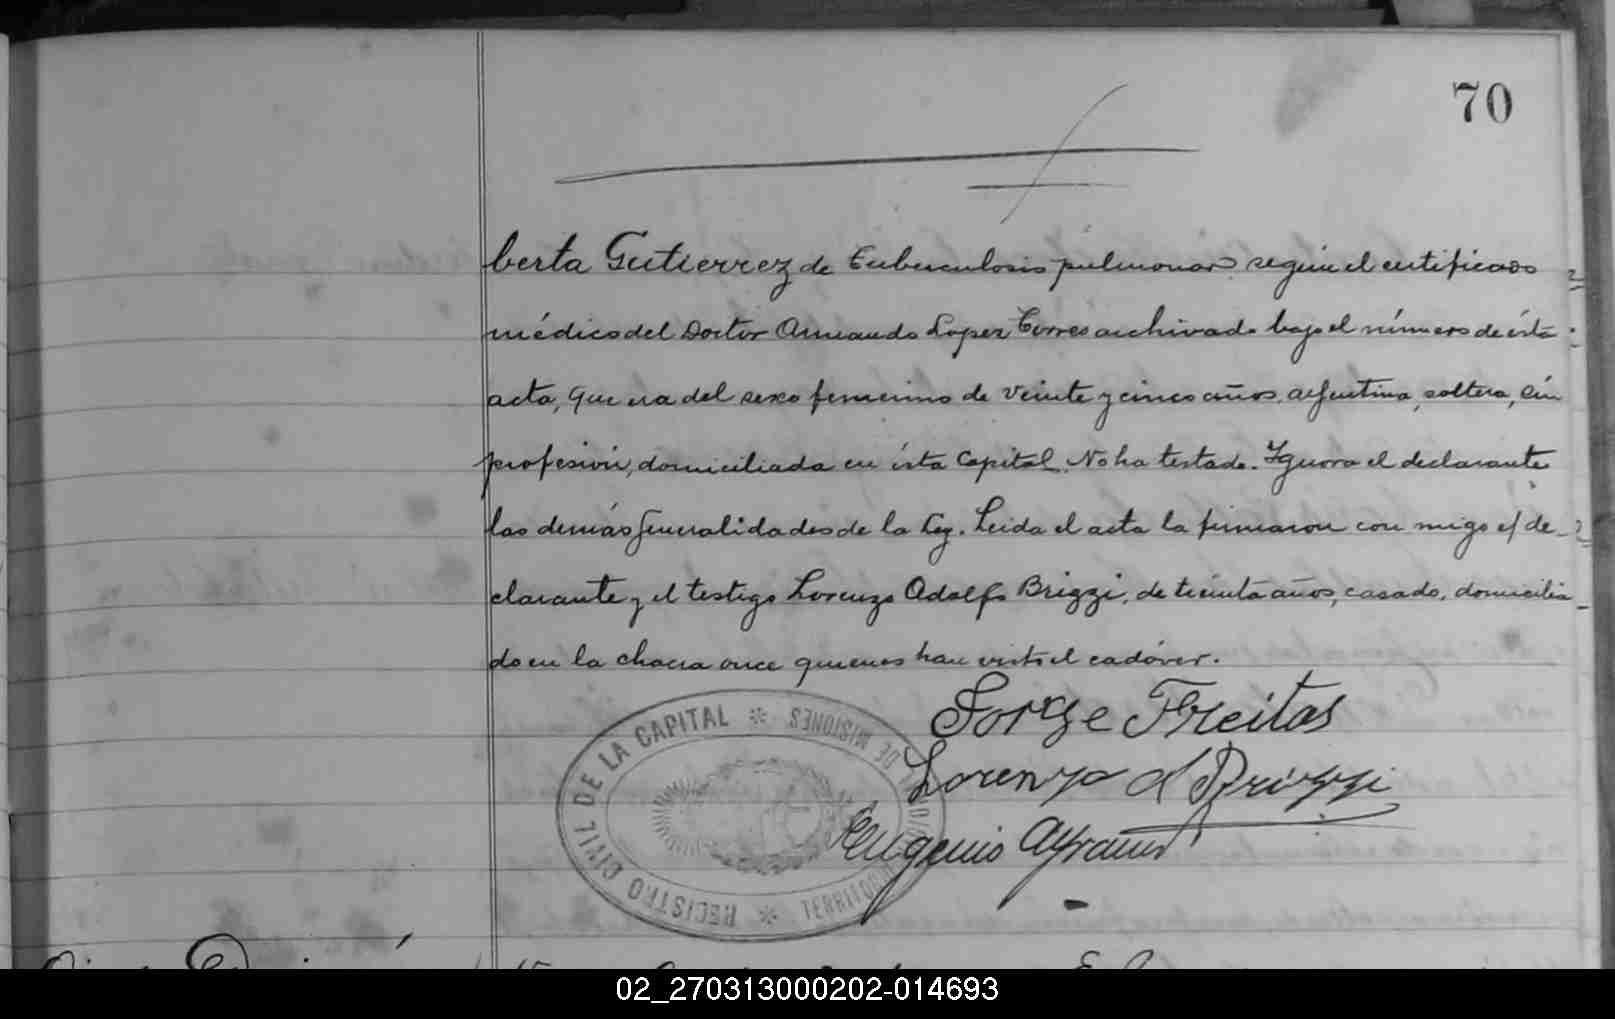 70
berta Gutierrez de Tuberculosis pulmonar segun el certificado
médico del Doctor Armando Lopez Torres archivado bajo el número de ésta
acta, que era del sexo femenino de veinte y cinco años, argentina, soltera, sin
profesión, domiciliada en ésta Capital. No ha testado. Ignora el declarante
las demás generalidades de la Ley. Leida el acta la firmaron con migo el de-
clarante y el testigo Lorenzo Adolfo Brizzi, de treinta años, casado, domicilia
do en la chacra once quienes han visto el cadáver.
Jorge Freitas
Lorenzo A Brizzi
Eugenio
REGISTRO CIVIL DE LA CAPITAL * TERRITORIO NACIONAL DE MISIONES *
02_270313000202-014693